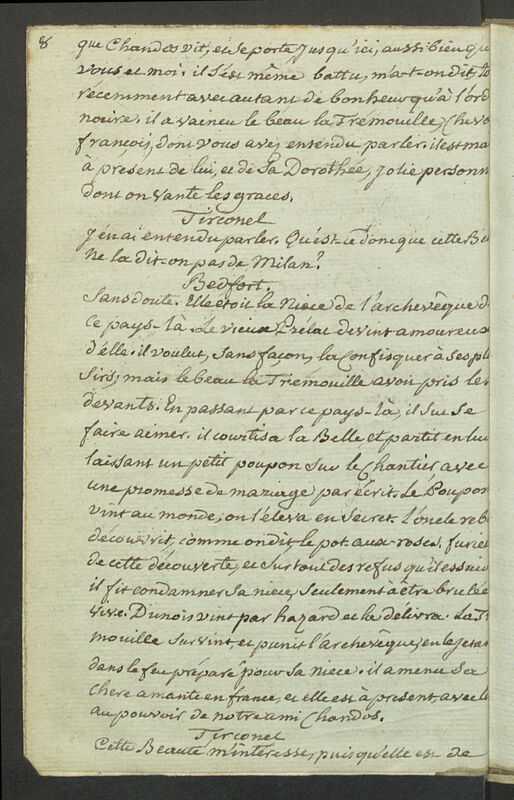 8
que Chandos vit, et se porte jusqu'ici, aussi bien que
vous et moi. il s'est même battu, m'a-t-on dit, to
récemment avec autant de bonheur qu'à l'ord
naire. il a vaincu le beau la Tremouille, Cheva
françois, dont vous avez entendu parler. il est ma
à présent de lui, et de sa Dorothée, jolie personn
dont on vante les graces.
Tirconel
J'en ai entendu parler. Qu'est-ce donc que cette Be
ne la dit-on pas de Milan?
Bedfort.
Sans doute. Elle étoit la Niece de l'archevêque d
ce pays-là. Le vieux Prélat devint amoureux
d'elle. il voulut, sans façon, la confisquer à ses pl
sirs; mais le beau la Tremouille avoit pris les
devants. En passant par ce pays-là, il sut se
faire aimer. il courtisa la Belle et partit en lui
laissant un petit poupon sur le chantier avec
une promesse de mariage par écrit. Le Poupon
vint au monde, on l'éleva en secret. L'oncle reb
découvrit, comme on dit, le pot aux roses. furieu
de cette découverte, et surtout des refus qu'il essuio
il fit condamner sa niece, seulement à être brulée
vive. Dunois vint par hazard et la délivra. La Tr
mouille survint, et punit l'archevêque, en le jetan
dans le feu préparé pour sa niece. il amena sa
chere amante en france, et elle est à présent avec l
au pouvoir de notre ami Chandos.
Tirconel
Cette Beauté m'intéresse, puisqu'elle est de